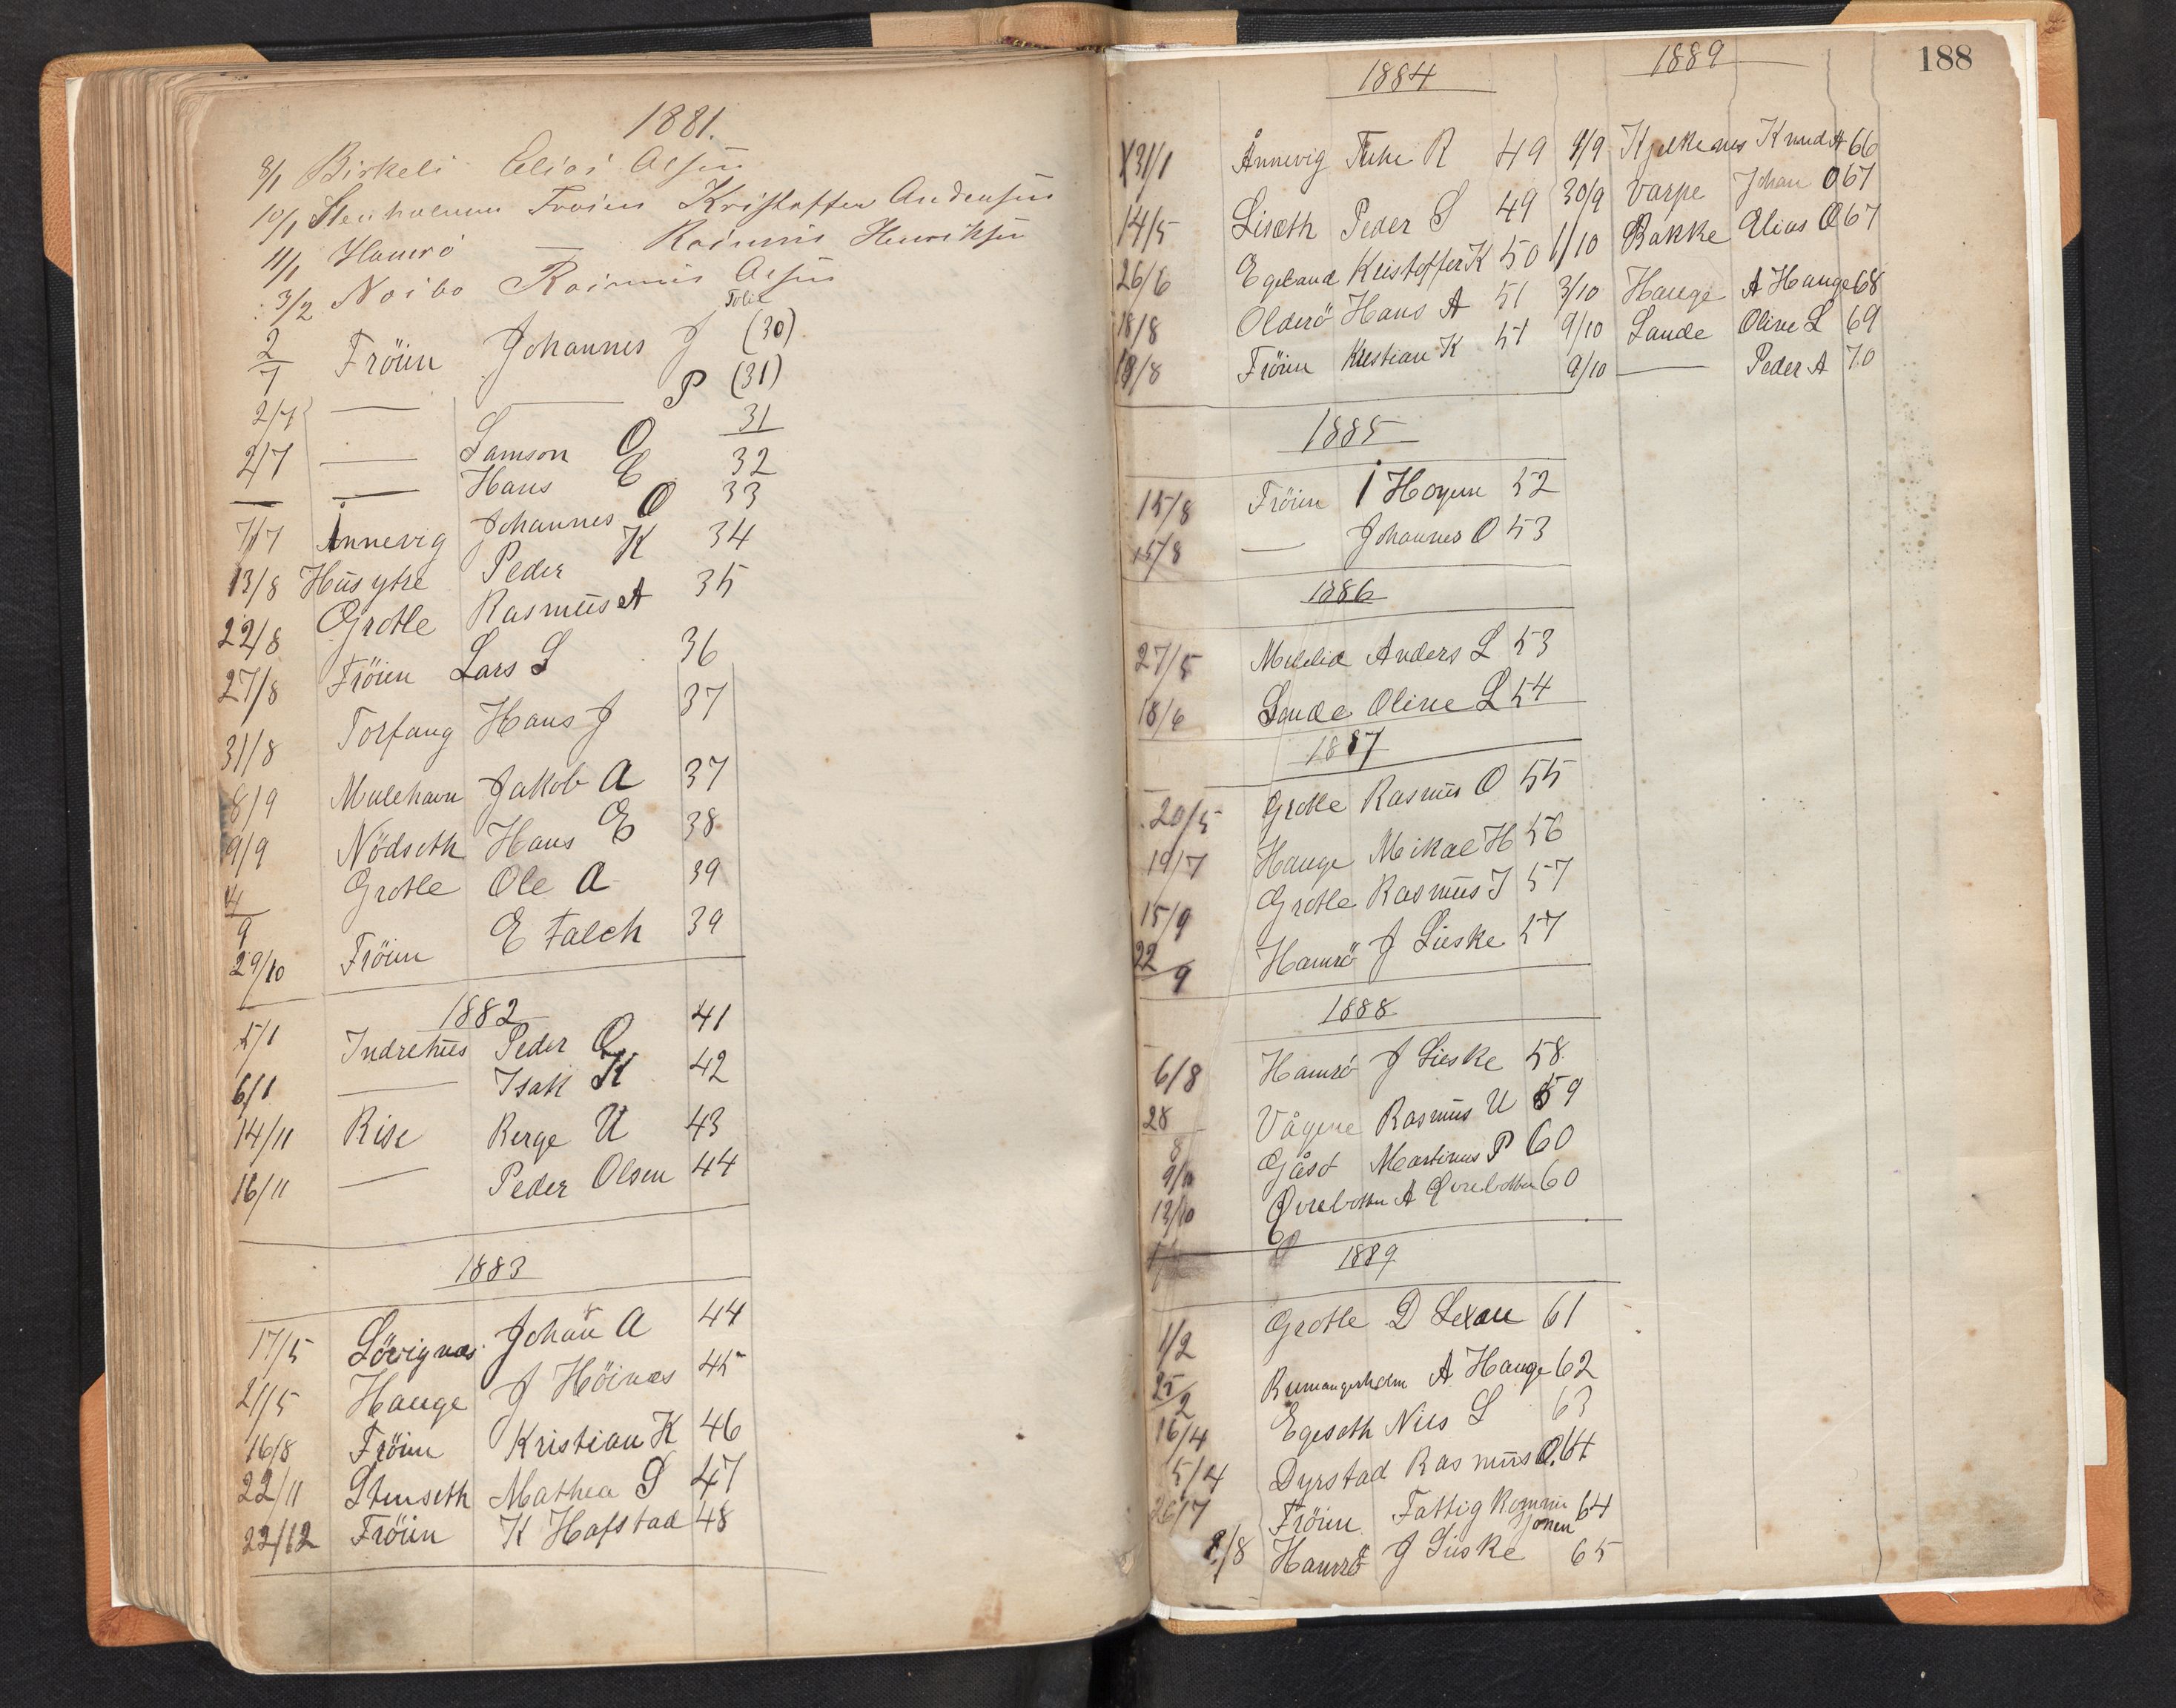 1881.
8/1 Birkeli Elias Olsen
10/1 Stenholmen Fröien Kristoffer Andersen
11/1 Hamrö — Rasmus Henriksen
3/2 Noibo Rasmus Olsen
Folie
2/7 Fröien Johannes J (30)
2/7 — — P (31)
2/7 — Samson O 31
— — Hans E 32
7/7 Ånnevig Johannes O 33
13/8 Hüs ytre Peder K 34
22/8 Grotle Rasmüs A 35
27/8 Fröien Lars S 36
31/8 Torfang Hans J 37
8/9 Mulehavn Jakob A 37
9/9 Nödseth Hans E 38
4/9 Grotle Ole A 39
29/10 Fröien E Falch 39
1882
5/1 Indrehüs Peder O 41
6/1 — Isak K 42
14/11 Rise Berge U 43
16/11 — Peder Olsen 44
1883
17/5 Lövignæs Johan A 44
21/5 Hauge J Höinæs 45
16/8 Fröien Kristian K 46
22/11 Stenseth Mathea S 47
22/12 Fröien K Hofstad 48
188
1884
X31/1 Ånnevig R 49
14/5 Liseth Peder S 49
26/6 Egeland Kristoffer K 50
18/8 Olderö Hans A 51
19/8 Fröien Kristian K 51
1885
15/8 Fröien I Hoyem 52
15/8 — Johannes O 53
1886
27/5 Mulelid Anders L 53
18/6 Sande Oline L 54
1887
20/5 Grotle Rasmüs O 55
19/7 Hauge Mikal H 56
15/9 Grotle Rasmüs J 57
22/9 Hamrö J Lieske 57
1888
6/8 Hamrö J Lieske 58
28/8 Vågene Rasmüs U 59
9/11 Gåsö Martinus P 60
13/10 Överbotten A Överbotten 60
1889
1/2 Grotle D Lexau 61
25/2 A Hauge 62
16/4 Egeseth Nils S 63
5/4 Dyrstad Rasmüs O. 64
26/7 Fröien Fattig Kommis
sjonen 64
8/8 Hamrö J Lieske 65
1889
9/9 Kjelkenes Knud A 66
30/9 Varpe Johan O 67
1/10 Bakke Elias O 67
3/10 Hauge A Hauge 68
9/10 Sande Oline L 69
9/10 — Peder A 70